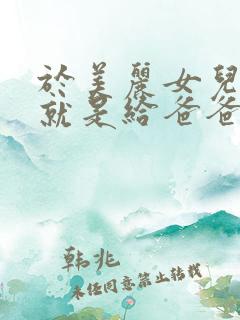 於美麗女兒
就是給爸爸
韩兆
未经同意禁止转载